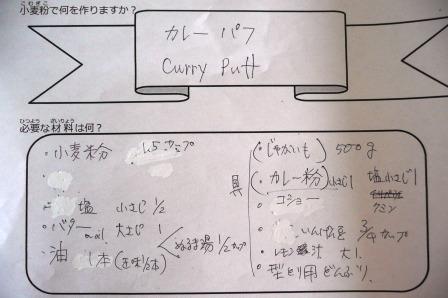 小麦粉で何を作りますか？
カレー パフ
Curry Puff
必要な材料は何？
・小麦粉 1.5カップ
・塩 小さじ 1/2
・バター 大さじ 1
・油 1本
ぬるま湯 1/2カップ
具
・じゃがいも 500g
・カレー粉 小さじ1
塩 小さじ1
・コショー
クミン
・いんげん豆 3/4カップ
・レモン汁 大1.
・型とり用どんぶり.